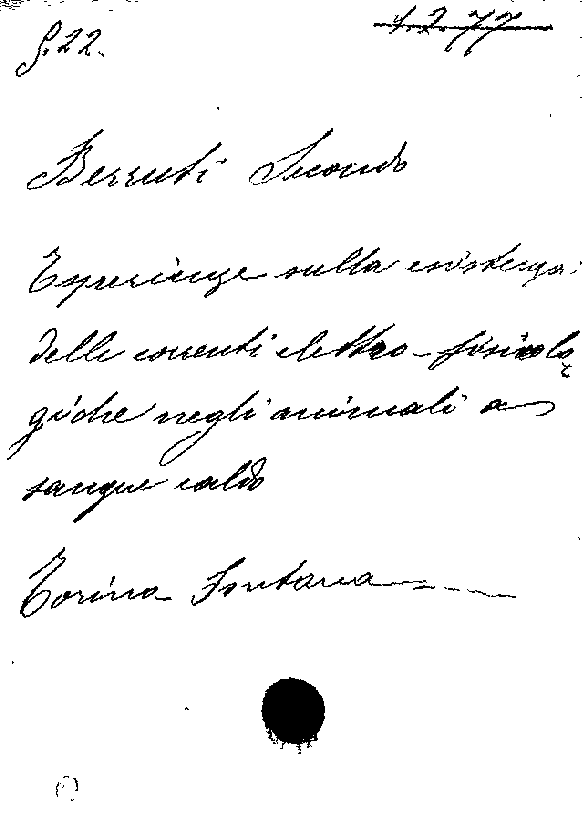 S. 22.
1.2.77
Berruti Secondo
Esperienze sulla esistenza
delle correnti elettro-fisiolo
giche negli animali a
sangue caldo
Torino Fontana